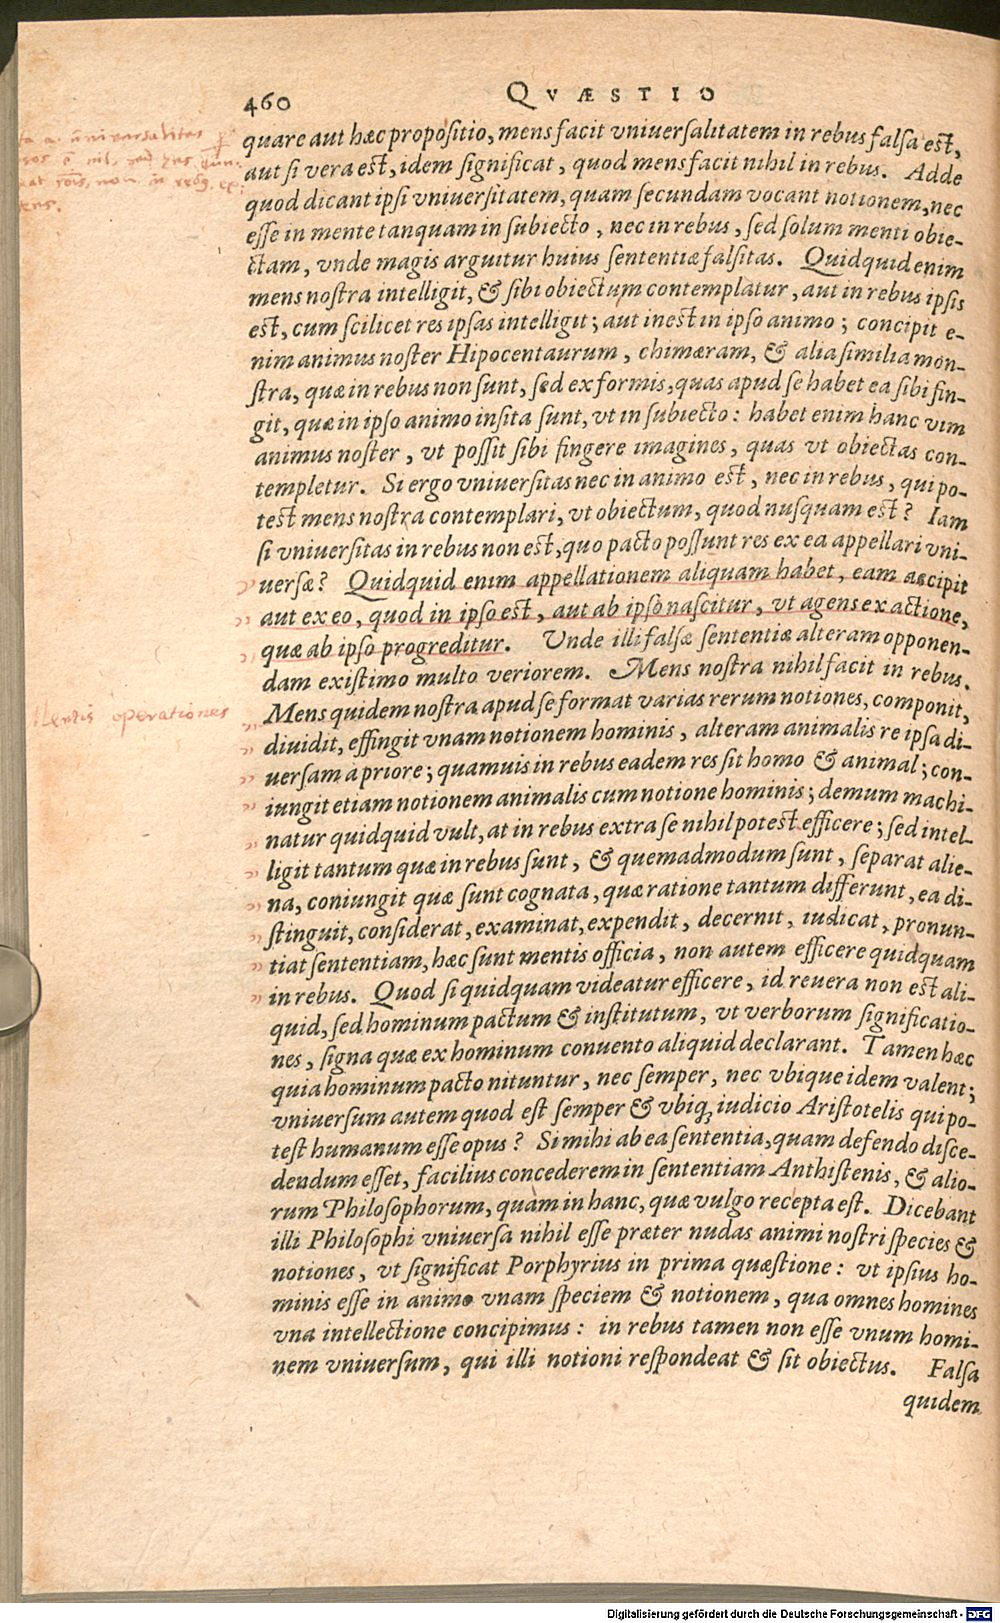 460
QVÆSTIO
quare aut hæc propositio, mens facit vniuersalitatem in rebus falsa est,
aut si vera est, idem significat, quod mens facit nihil in rebus. Adde
quod dicant ipsi vniuersitatem, quam secundam vocant notionem, nec
esse in mente tanquam in subiecto, nec in rebus, sed solum menti obie-
ctam, vnde magis arguitur huius sententiæ falsitas. Quidquid enim
mens nostra intelligit, & sibi obiectum contemplatur, aut in rebus ipsis
est, cum scilicet res ipsas intelligit; aut inest in ipso animo; concipit e-
nim animus noster Hipocentaurum, chimæram, & alia similia mon-
stra, quæ in rebus non sunt, sed ex formis, quas apud se habet ea sibi fin-
git, quæ in ipso animo insita sunt, vt in subiecto: habet enim hanc vim
animus noster, vt possit sibi fingere imagines, quas vt obiectas con-
templetur. Si ergo vniuersitas nec in animo est, nec in rebus, qui po-
test mens nostra contemplari, vt obiectum, quod nusquam est? Iam
si vniuersitas in rebus non est, quo pacto possunt res ex ea appellari vni-
uersæ? Quidquid enim appellationem aliquam habet, eam accipit
aut ex eo, quod in ipso est, aut ab ipso nascitur, vt agens ex actione,
quæ ab ipso progreditur. Vnde illi falsæ sententiæ alteram opponen-
dam existimo multo veriorem. Mens nostra nihil facit in rebus.
Mentis operationes
Mens quidem nostra apud se format varias rerum notiones, componit,
diuidit, effingit vnam notionem hominis, alteram animalis re ipsa di-
uersam a priore; quamuis in rebus eadem res sit homo & animal; con-
iungit etiam notionem animalis cum notione hominis; demum machi-
natur quidquid vult, at in rebus extra se nihil potest efficere; sed intel-
ligit tantum quæ in rebus sunt, & quemadmodum sunt, separat alie-
na, coniungit quæ sunt cognata, quæ ratione tantum differunt, ea di-
stinguit, considerat, examinat, expendit, decernit, iudicat, pronun-
tiat sententiam, hæc sunt mentis officia, non autem efficere quidquam
in rebus. Quod si quidquam videatur efficere, id reuera non est ali-
quid, sed hominum pactum & institutum, vt verborum significatio-
nes, signa quæ ex hominum conuento aliquid declarant. Tamen hæc
quia hominum pacto nituntur, nec semper, nec vbique idem valent;
vniuersum autem quod est semper & vbiq; iudicio Aristotelis qui po-
test humanum esse opus? Si mihi ab ea sententia, quam defendo disce-
dendum esset, facilius concederem in sententiam Anthistenis, & alio-
rum Philosophorum, quam in hanc, quæ vulgo recepta est. Dicebant
illi Philosophi vniuersa nihil esse præter nudas animi nostri species &
notiones, vt significat Porphyrius in prima quæstione: vt ipsius ho-
minis esse in animo vnam speciem & notionem, qua omnes homines
vna intellectione concipimus: in rebus tamen non esse vnum homi-
nem vniuersum, qui illi notioni respondeat & sit obiectus. Falsa
quidem
Digitalisierung gefördert durch die Deutsche Forschungsgemeinschaft - DFG